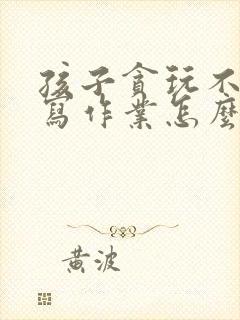 孩子貪玩不
寫作業怎麼
黃波